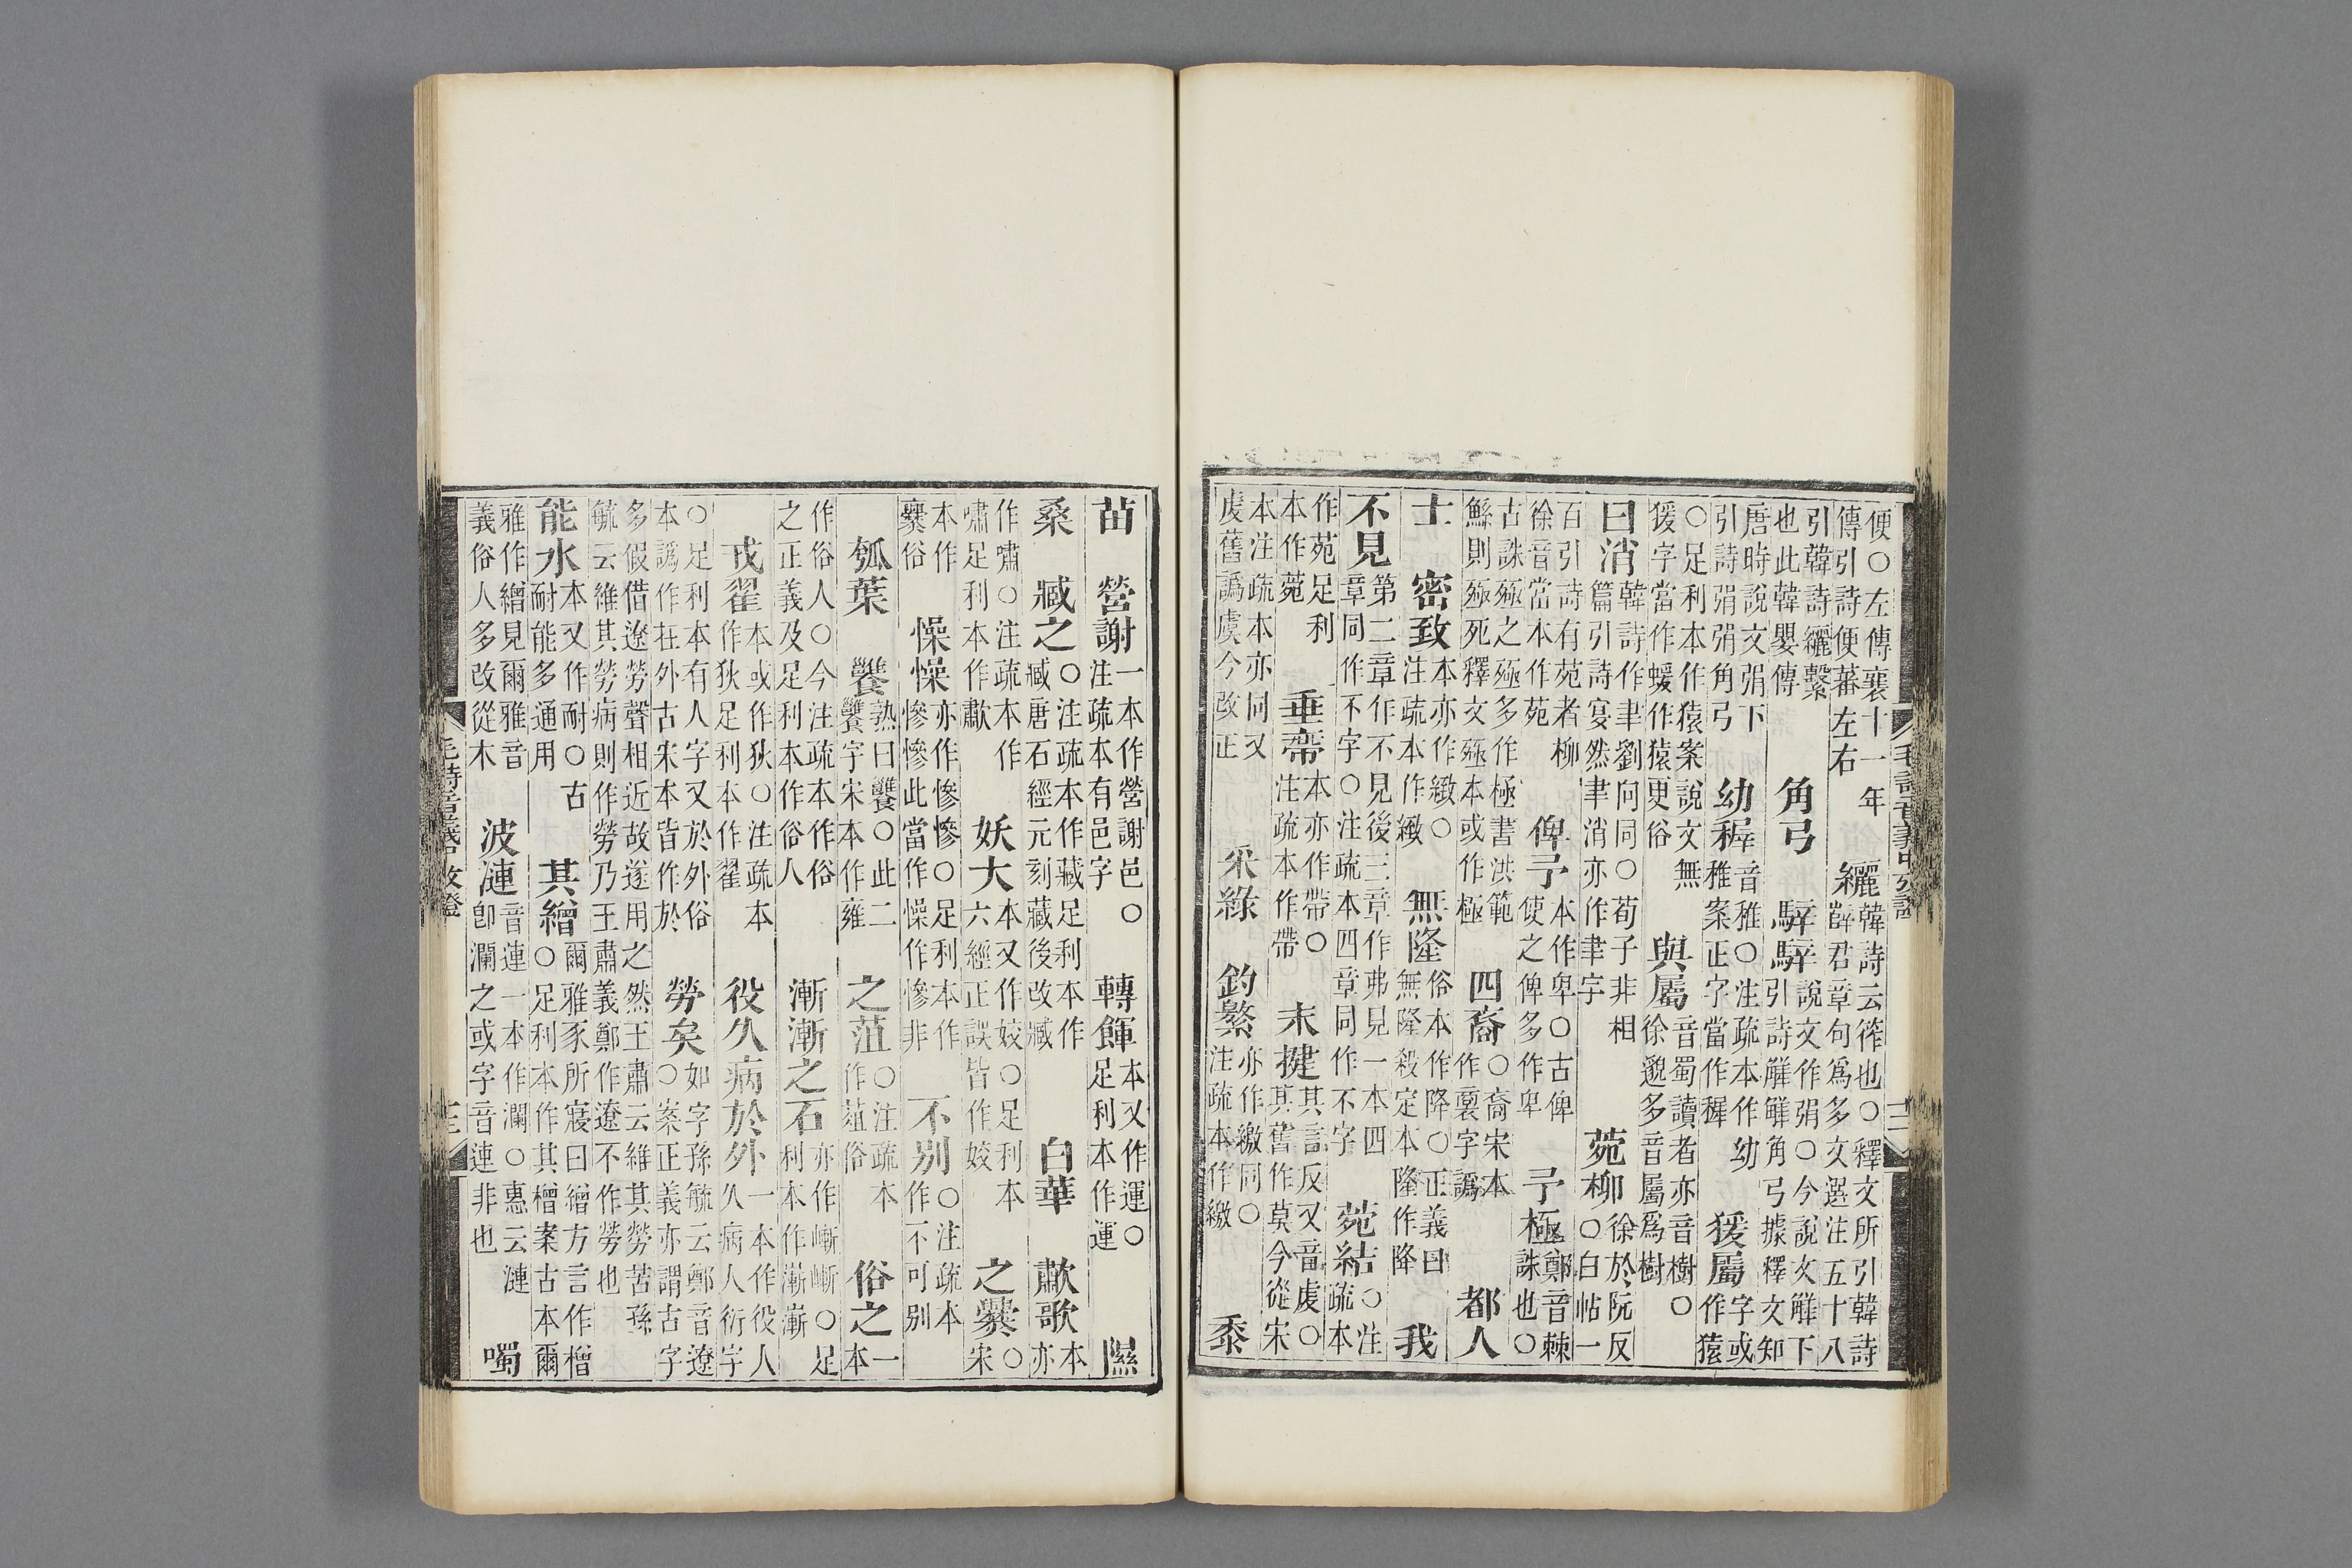 便○左傳襄十一年
傳引詩便蕃左右
纚韓詩云筰也○釋文所引韓詩
薛君章句爲多文選注五十八
引韓詩纚繫
也此韓嬰傳
角弓
騂騂說文作弲○今說文觲下
引詩觲觲角弓據釋文知
唐時說文弲下
引詩弲弲角弓
幼稺音稚○注疏本作幼
稚案正字當作稺
猨屬字或
作猿
○足利本作猿案說文無
猨字當作蝯作猿更俗
與屬音蜀讀者亦音樹○
徐邈多音屬爲樹
曰消韓詩作聿劉向同○荀子非相
篇引詩宴然聿消亦作聿字
菀柳徐於阮反
○白帖一
百引詩有菀者柳
徐音當本作苑
俾予本作卑○古俾
使之俾多作卑
予極鄭音棘
誅也○
古誅殛之殛多作極書洪範
鯀則殛死釋文殛本或作極
四裔○裔宋本
作裏字譌
都人
士
密致本亦作緻○
注疏本作緻
無隆俗本作降○正義曰
無隆殺定本隆作降
我
不見第二章作不見後三章作弗見一本四
章同作不字○注疏本四章同作不字
菀結○注
疏本
作苑足利
本作菀
垂帶本亦作帶○
注疏本作帶
末揵其言反又音虔○
其舊作莫今從宋
本注疏本亦同又
虔舊譌虞今改正
采綠
釣繁亦作繳同○
注疏本作繳
黍
苗
營謝一本作營謝邑○
注疏本有邑字
轉餫本又作運○
足利本作運
隰
桑
臧之○注疏本作藏足利本作
臧唐石經元刻藏後改臧
白華
歗歌本
亦
作嘯○注疏本作
嘯足利本作歗
妖大本又作姣○足利本
六經正誤皆作姣
之爨○
宋
本作
爨俗
懆懆亦作慘慘○足利本作
慘慘此當作懆作慘非
不别○注疏本
作不可别
瓠葉
饔孰曰饔○此二
饔字宋本作雍
之菹○注疏本
作葅俗
俗之一
本
作俗人○今注疏本作俗
之正義及足利本作俗人
漸漸之石亦作嶃嶃○足
利本作漸漸
戎翟本或作狄○注疏本
作狄足利本作翟
役久病於外一本作役人
久病人衍字
○足利本有人字又於外俗
本譌作在外古宋本皆作於
勞矣如字孫毓云鄭音遼
○案正義亦謂古字
多假借遼勞聲相近故遂用之然王肅云維其勞苦孫
毓云維其勞病則作勞乃王肅義鄭作遼不作勞也
能水本又作耐○古
耐能多通用
其繒爾雅豕所寢曰橧方言作橧
○足利本作其橧案古本爾
雅作繒見爾雅音
義俗人多改從木
波漣音連一本作瀾○惠云漣
卽瀾之或字音連非也
噣
毛詩音義中攷證